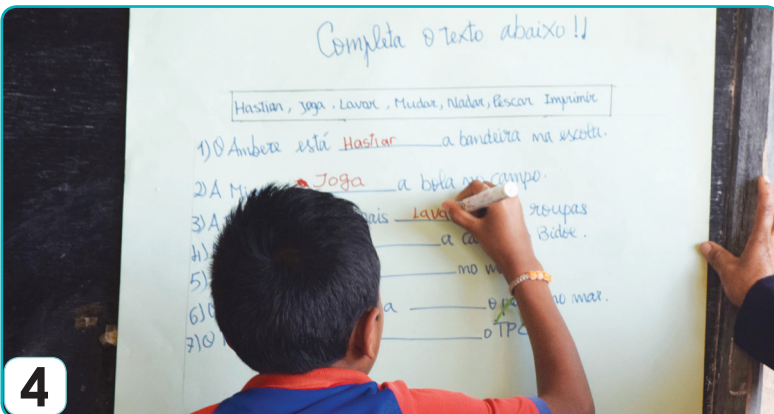 Completa o texto abaixo!!
Hastian, Joga, Lavar, Mudar, Nadar, Pescar Imprimir
1) O Ambere está Hastiar a bandeira na escola.
2) A Joga a bola no campo.
3) A Lava roupas
4) a Bidoe.
5) no
6) O a o no mar.
7) O o TPC
4